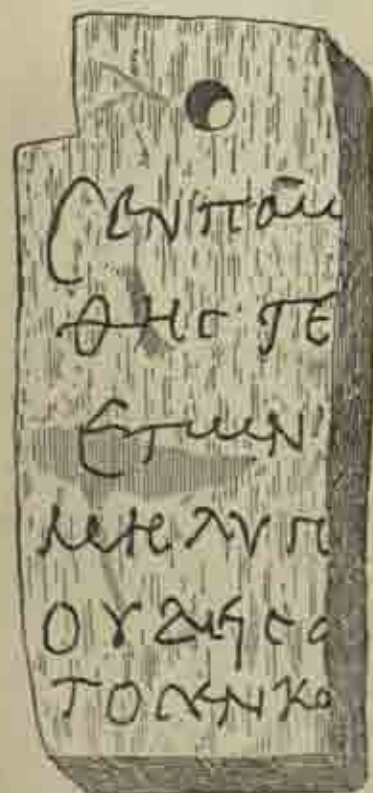 Cενπαμ
θης πε
ετων
μη λυπ
ουδις α
τος εν κο